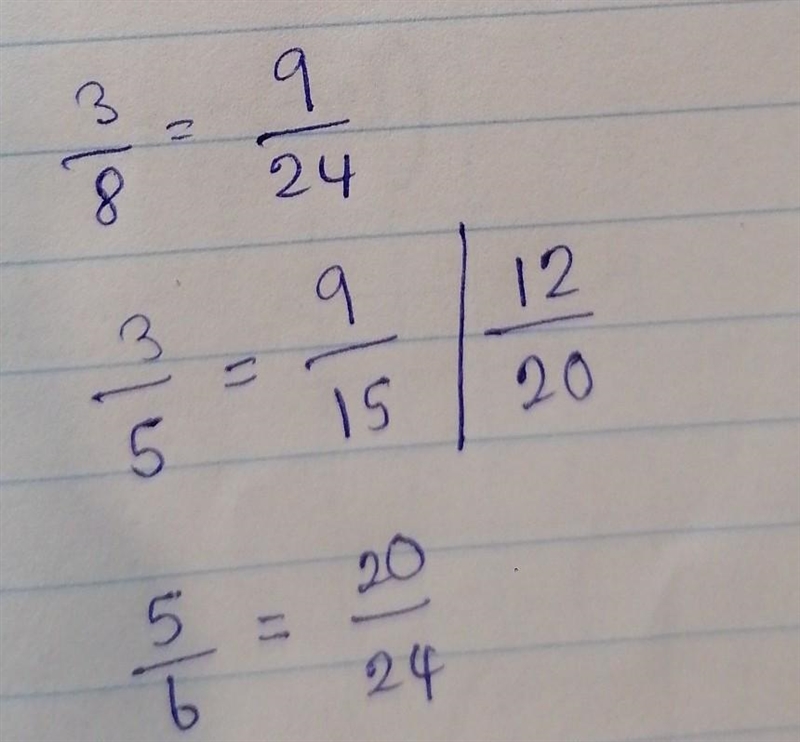 3/8 = 9/24
3/5 = 9/15 | 12/20
5/6 = 20/24